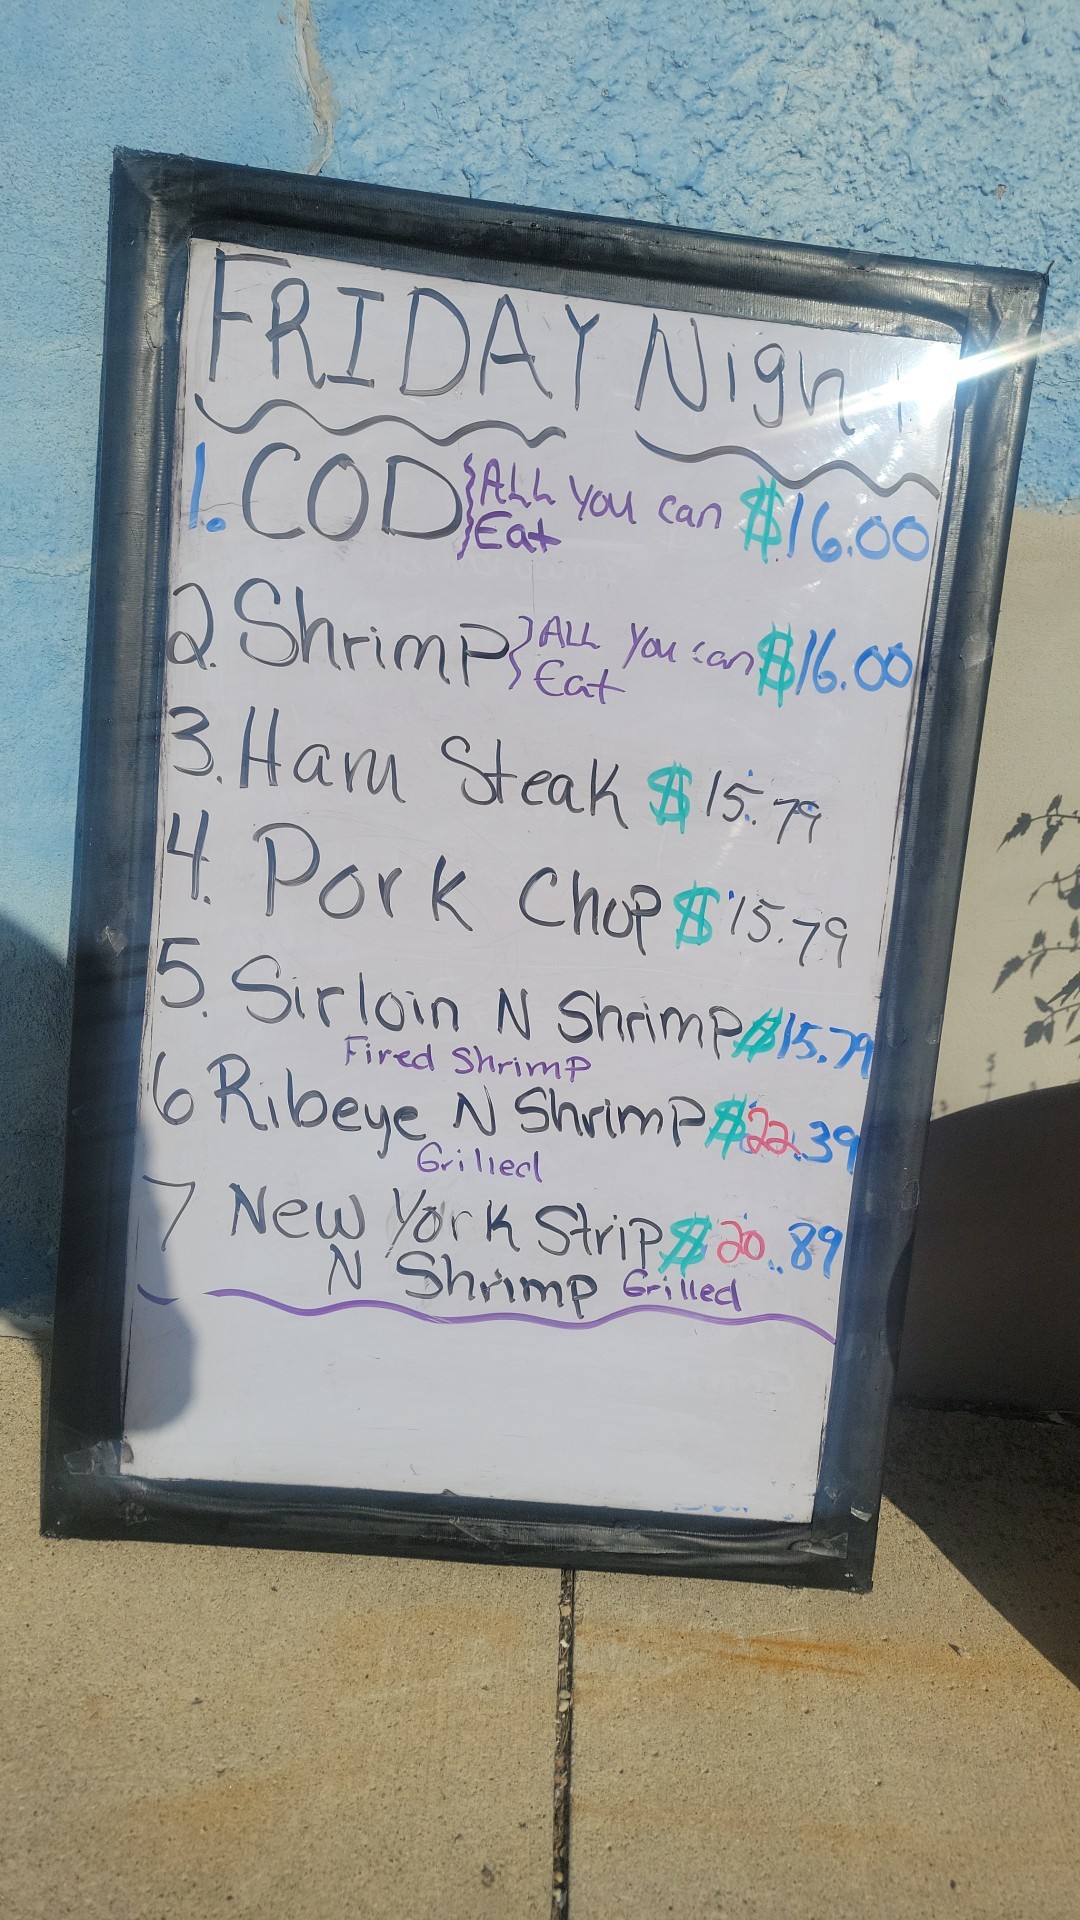 FRIDAY Night
1. COD } ALL You can Eat $16.00
2. Shrimp } ALL You can Eat $16.00
3. Ham Steak $15.79
4. Pork Chop $15.79
5. Sirloin N Shrimp $15.79
Fired Shrimp
6 Ribeye N Shrimp $22.39
Grilled
7 New York Strip $20.89
N Shrimp Grilled